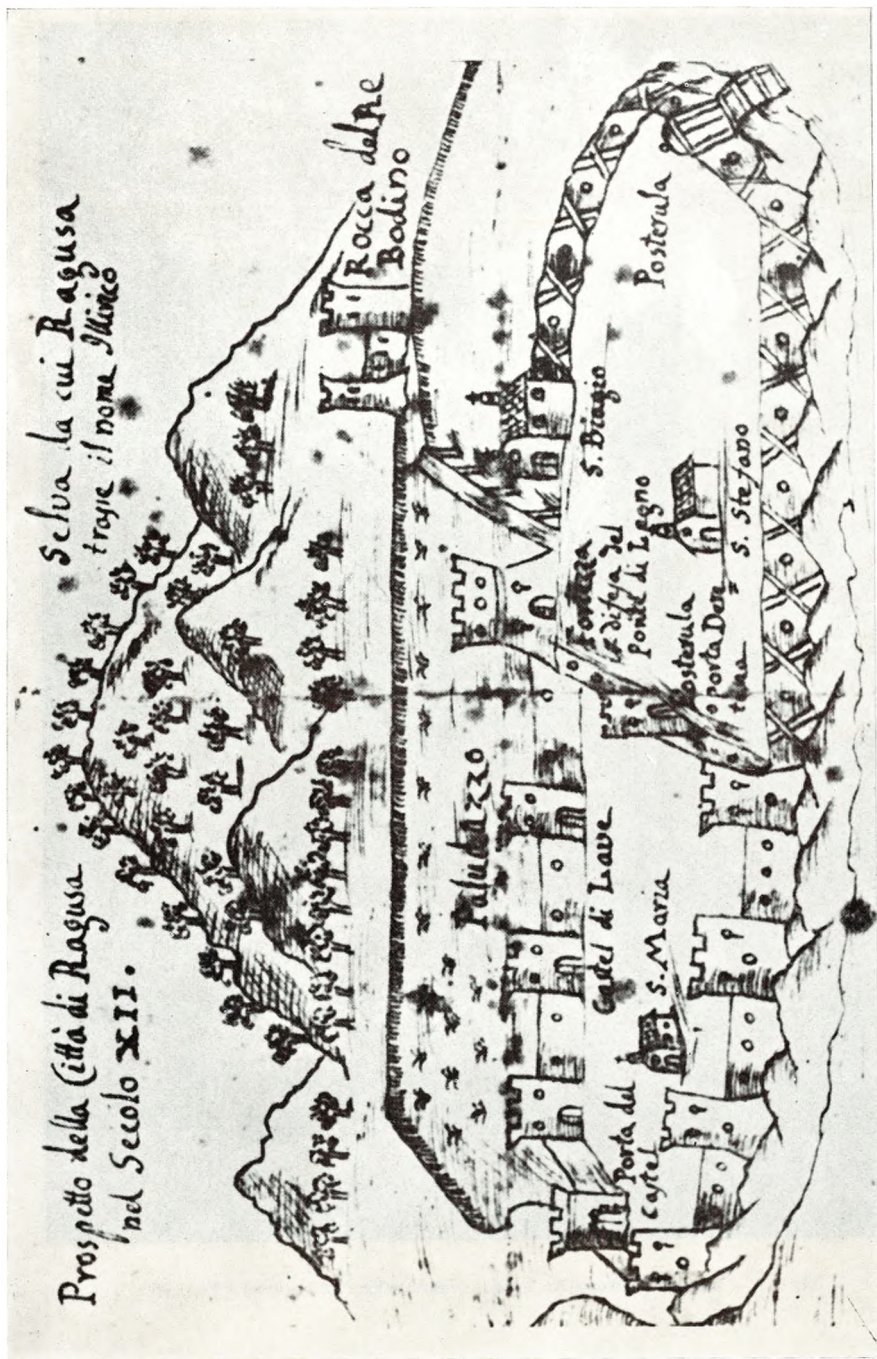 Prospetto della Città di Ragusa
nel Secolo XII.
Selva la cui Ragusa
trasse il nome Illirico
Rocca del Re
Bodino
Paludazzo
Castel di Lave
S. Maria
Porta del
Castel
Fortezza
a difesa del
ponte di Legno
S. Biagio
Posterula
o porta Dere=
tana
S. Stefano
Posterula